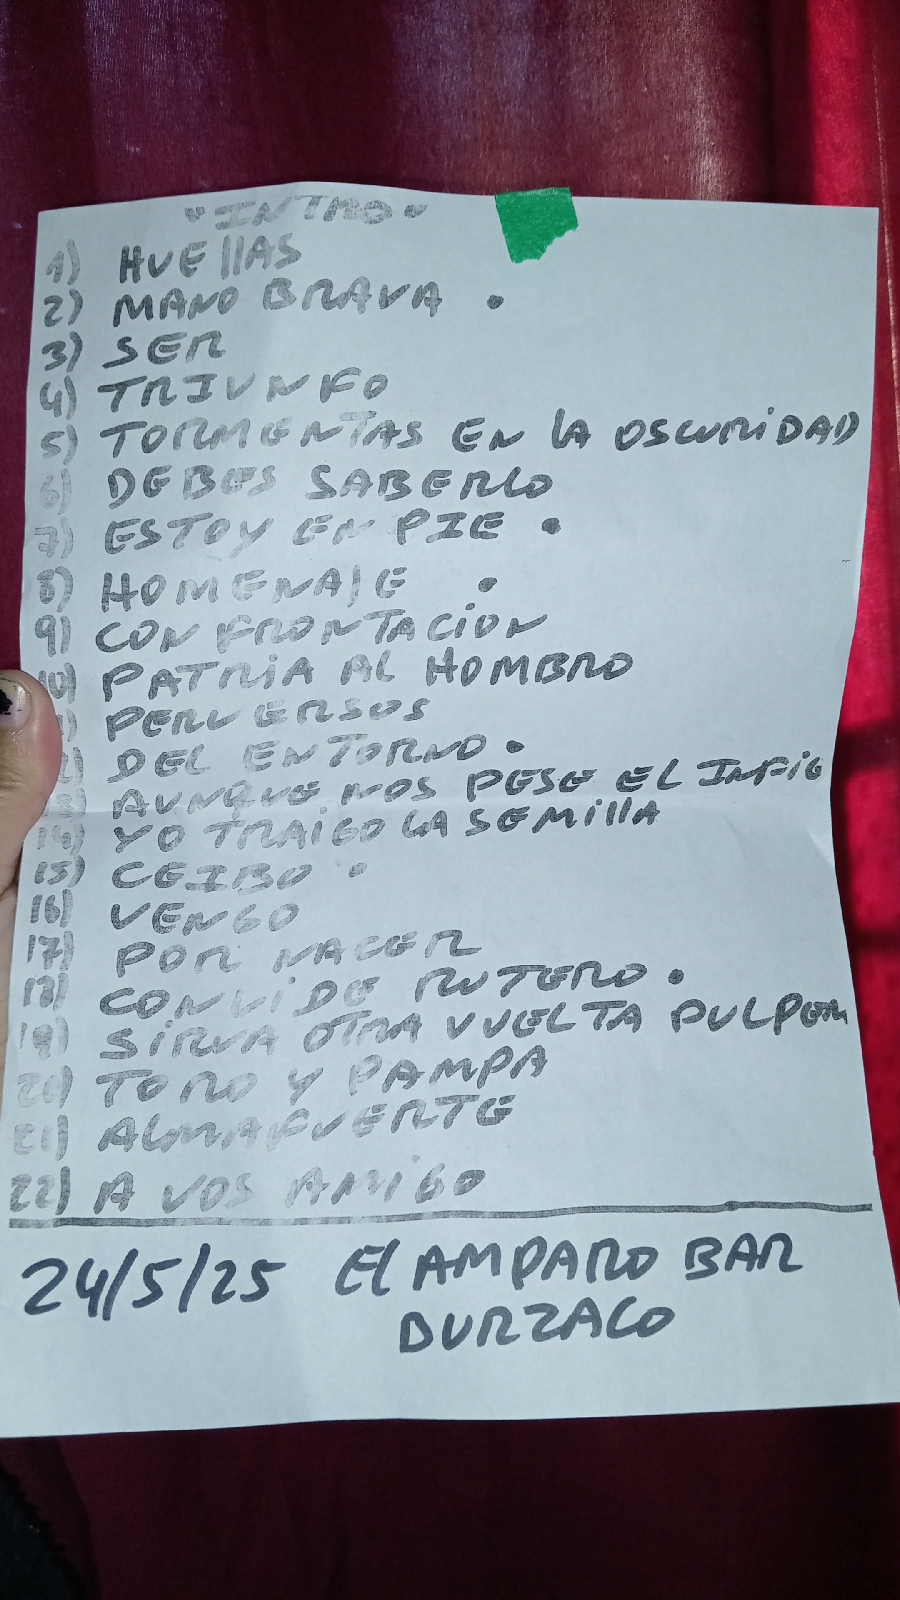 "INTRO"
1) HUEllAS
2) MANO BRAVA •
3) SER
4) TRIUNFO
5) TORMENTAS EN lA OSCURiDAD
6) DEBES SABERLO
7) ESTOY EN PIE •
8) HOMENAJE •
9) CONFRONTACiON
10) PATRiA AL HOMBRO
1) PERVERSOS
2) DEL ENTORNO •
13) AUNQUE NOS PESE EL INFIE
14) YO TRAiGO LA SEMillA
15) CEIBO •
16) VENGO
17) POR NACER
18) CONViDE RUTERO •
19) SiRVA OTRA VUELTA PULPER
20) TORO Y PAMPA
21) ALMAFUERTE
22) A VOS AMiGO
24/5/25 El AMPARO BAR
BURZACO